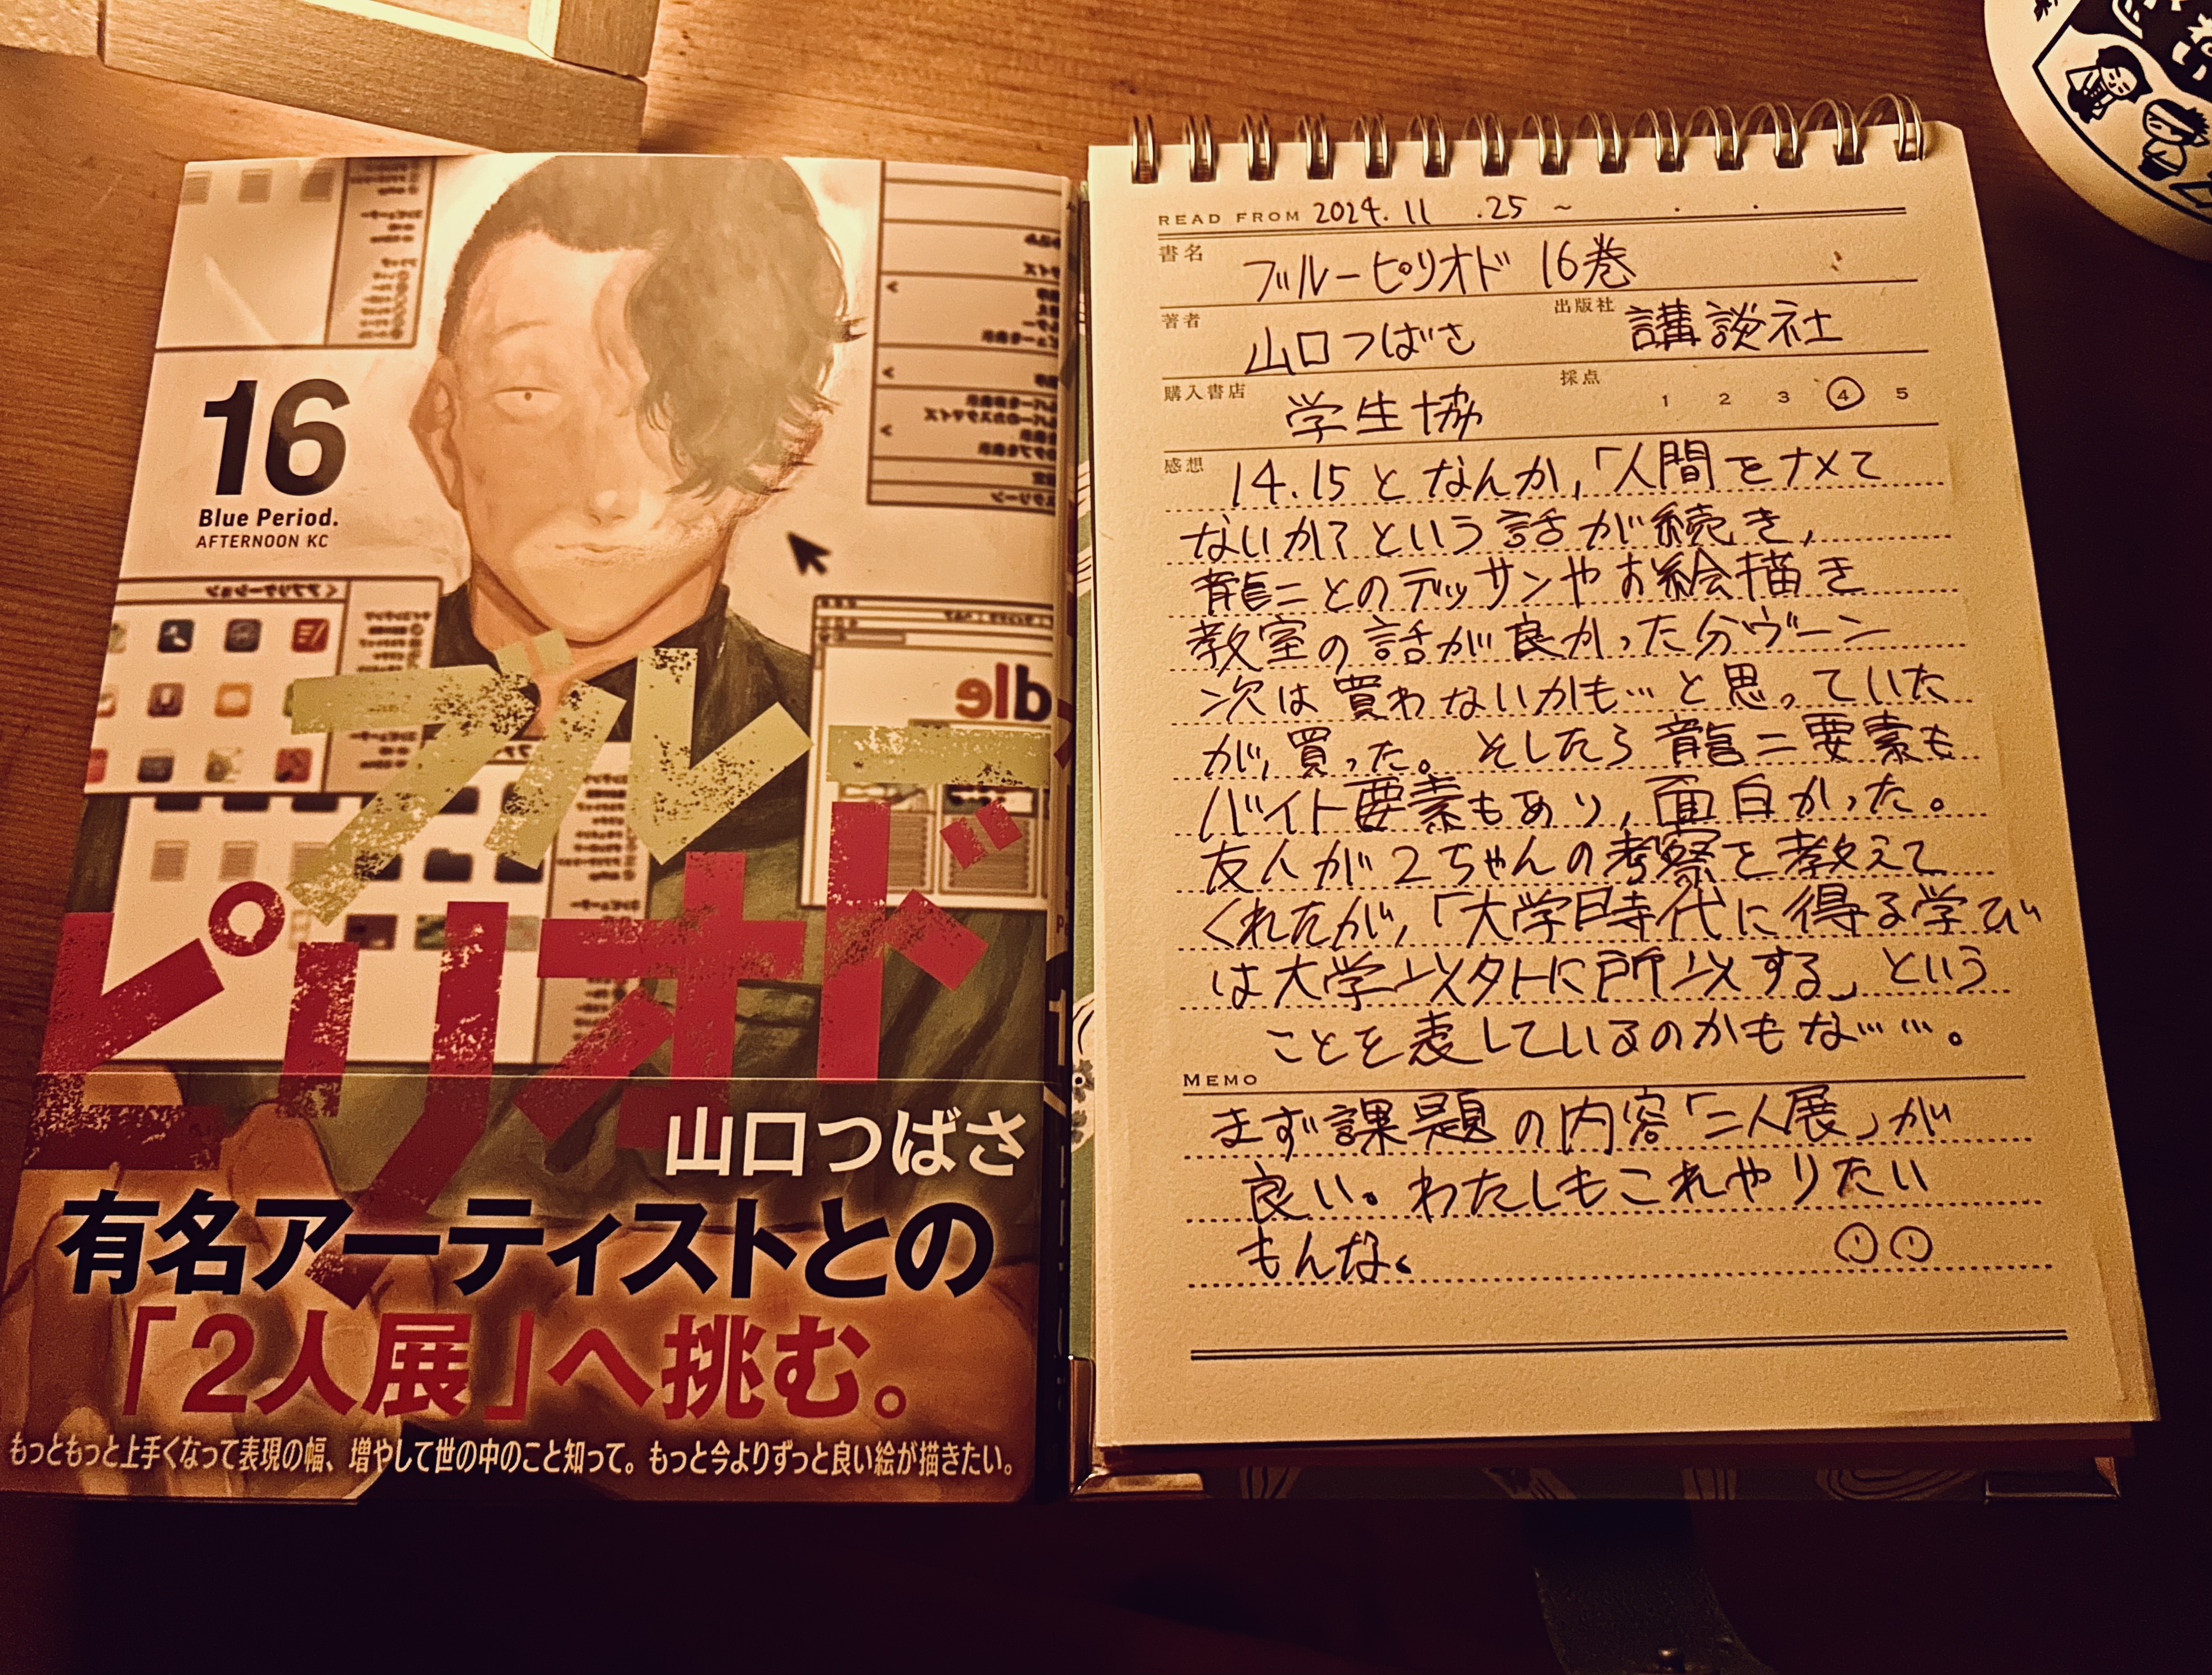 16
Blue Period.
AFTERNOON KC
ブルー
ピリオド
山口つばさ
有名アーティストとの
「2人展」へ挑む。
もっともっと上手くなって表現の幅、増やして世の中のこと知って。もっと今よりずっと良い絵が描きたい。
READ FROM 2024.11.25 ~ . .
書名 ブルーピリオド 16巻
著者 山口つばさ 出版社 講談社
購入書店 学生協 採点 1 2 3 4 5
感想 14.15となんか,「人間をナメて
ないか?という話が続き,
龍二とのデッサンやお絵描き
教室の話が良かった分ヴーン
次は買わないかも…と思っていた
が,買った。そしたら龍二要素も
バイト要素もあり,面白かった。
友人が2ちゃんの考察を教えて
くれたが,「大学時代に得る学び
は大学以外に所以する」という
ことを表しているのかもな……。
MEMO
まず課題の内容「二人展」が
良い。わたしもこれやりたい
もんな。